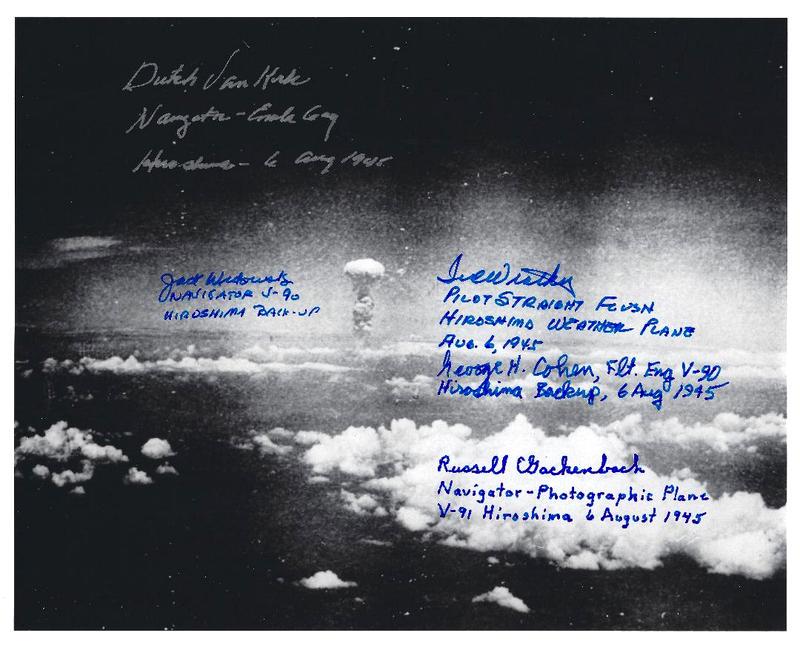 Dutch Van Kirk
Navigator - Enola Gay
Hiroshima - 6 Aug 1945
Jack Widowsky
NAVIGATOR V-90
HIROSHIMA BACK-UP
Ira Weatherly
PILOT STRAIGHT FLUSH
HIROSHIMA WEATHER PLANE
AUG. 6, 1945
George H. Cohen, Flt. Eng V-90
Hiroshima Backup, 6 Aug 1945
Russell Gackenbach
Navigator-Photographic Plane
V-91 Hiroshima 6 August 1945